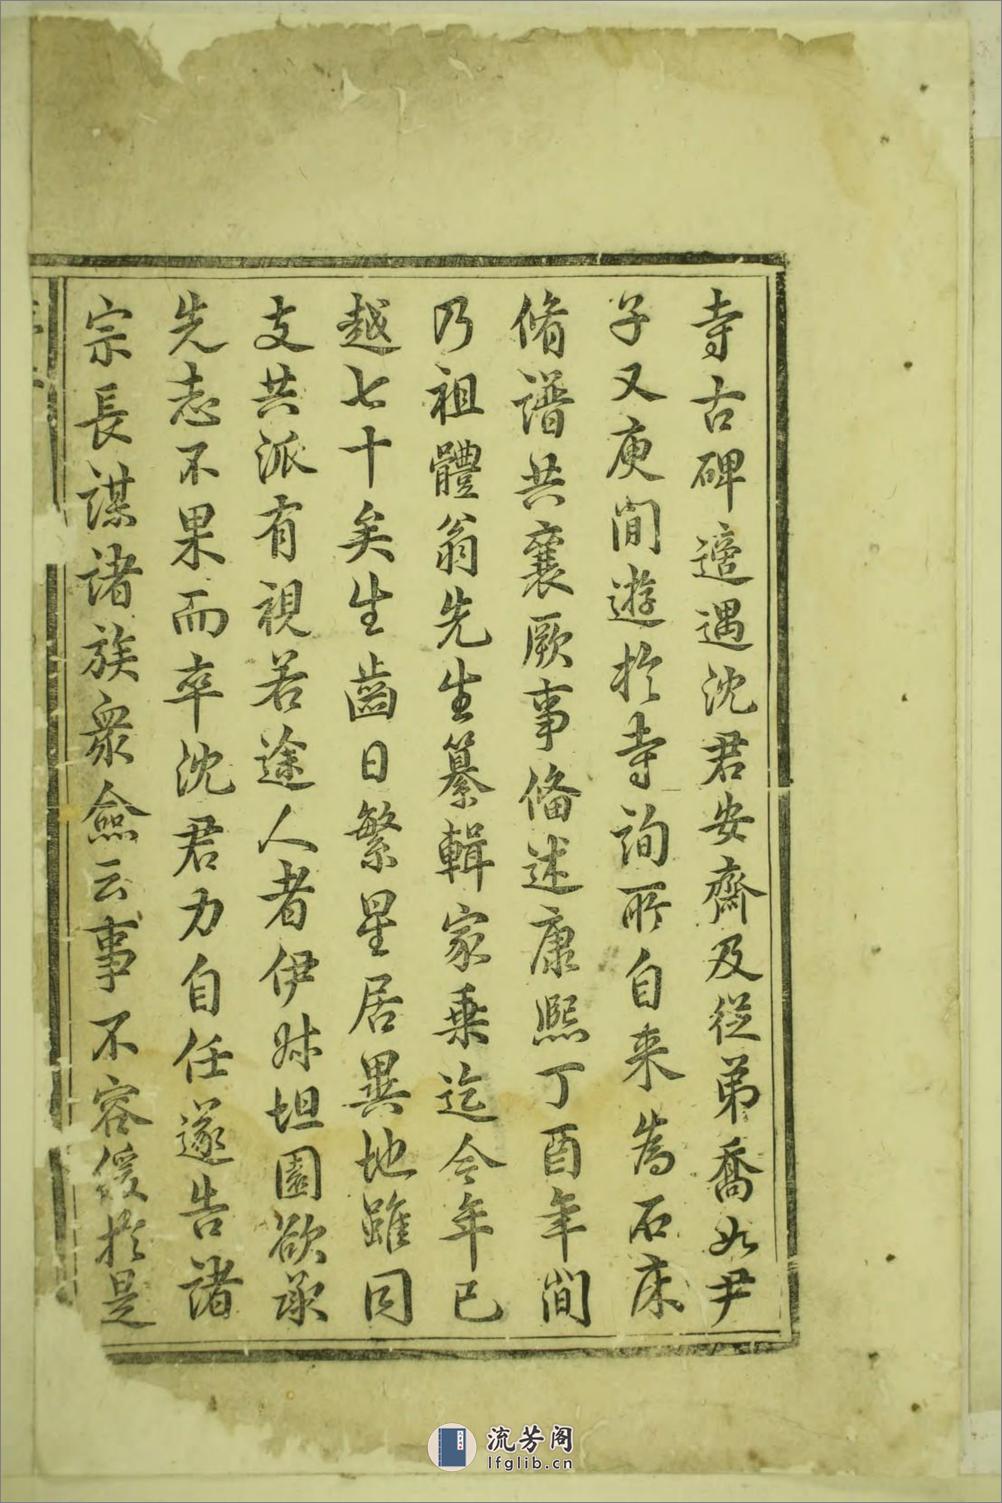 寺古碑適遇沈君安齋及從弟喬如尹
子又庚間遊於寺詢所自来為石床
脩譜共襄厥事偹述康熙丁酉年間
乃祖體翁先生纂輯家乗迄今年已
越七十矣生齒日繁星居異地雖同
支共派有視若途人者伊姊坦園欲承
先志不果而卒沈君力自任遂告諸
宗長謀諸族衆僉云事不容緩於是
流芳阁
lfglib.cn